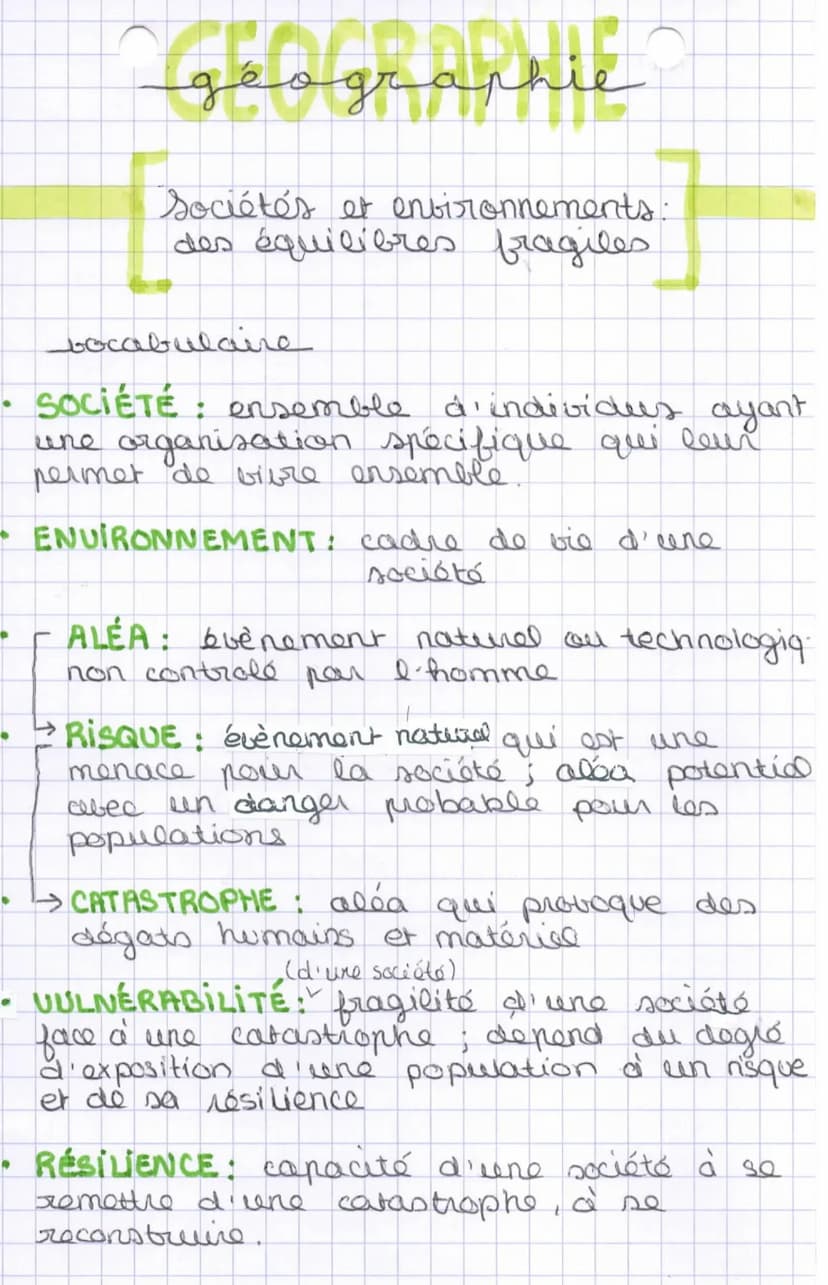 GÉOGRAPHIE
géographie
Sociétés et environnements:
des équilibres fragiles
vocabulaire
• SOCIÉTÉ : ensemble d'individus ayant
une organisation spécifique qui leur
permet de vivre ensemble.
• ENVIRONNEMENT : cadre de vie d'une
société
• ALÉA : évènement naturel ou technologiq
non controlé par l'homme
• → RISQUE : évènement naturel qui est une
menace pour la société ; aléa potentiel
avec un danger probable pour les
populations
• → CATASTROPHE : aléa qui provoque des
dégats humains et matériel
(d'une société)
• VULNÉRABILITÉ : fragilité d'une société
face à une catastrophe ; dépend du degré
d'exposition d'une population à un risque
et de sa résilience
• RÉSILIENCE : capacité d'une société à se
remettre d'une catastrophe, à se
reconstruire.